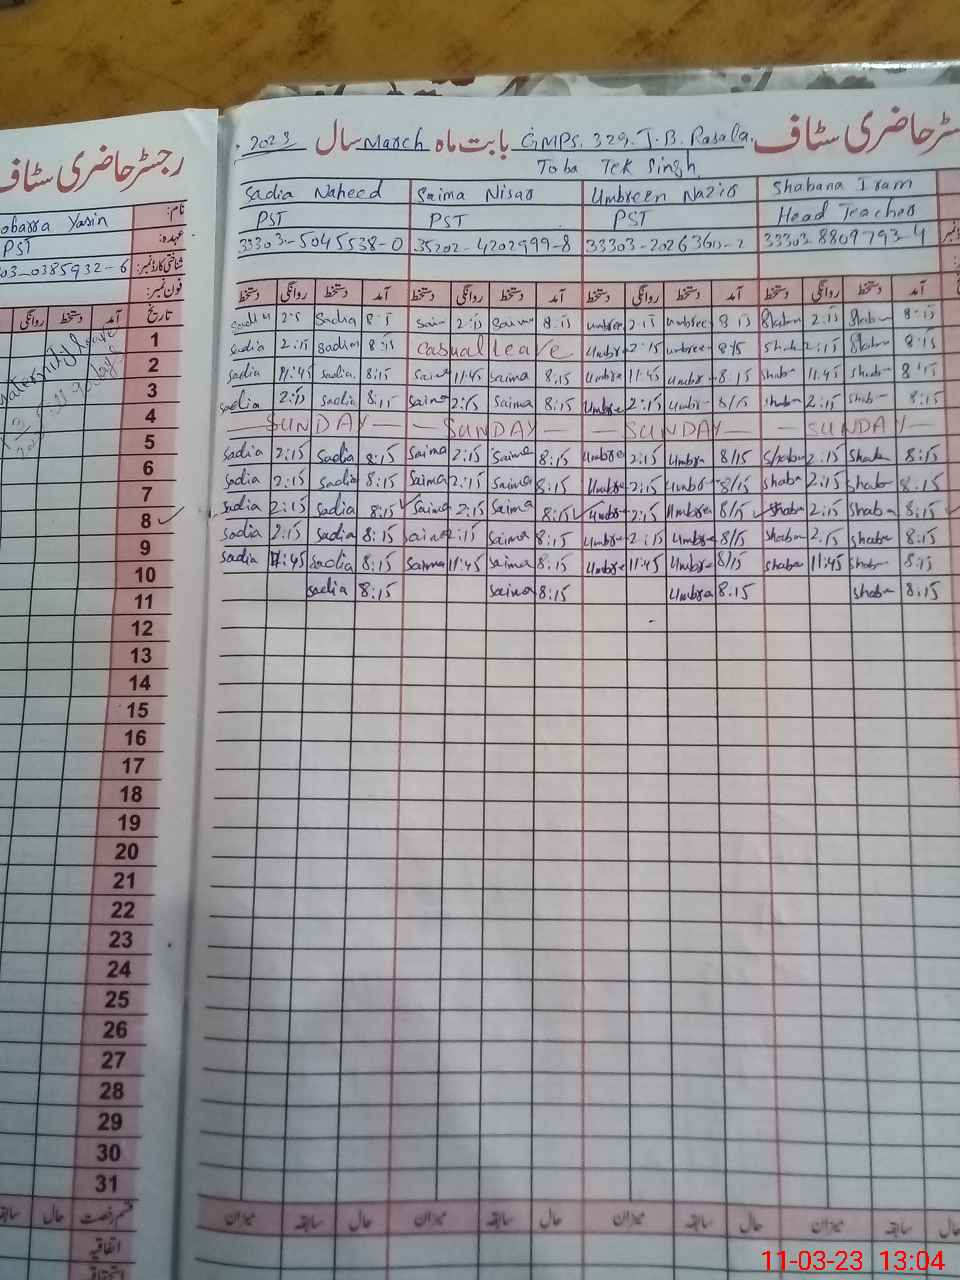 رجسٹر حاضری سٹاف
سٹر حاضری سٹاف GMPS. 329. J.B. Rasala. بابت ماہ March سال 2023
Toba Tek Singh
Sadia Naheed Saima Nisar Umbreen Nazir Shabana Iram
PST PST PST Head Teacher
33303-5045538-0 35202-4202999-8 33303-2026360-2 33303-8809793-4
دستخط روانگی دستخط آمد دستخط روانگی دستخط آمد دستخط روانگی دستخط آمد دستخط روانگی دستخط آمد
sadia 2:15 sadia 8:15 saima 2:15 saima 8:15 umbree 2:15 umbree 8:15 shaban 2:15 shaban 8:15
sadia 2:15 sadia 8:15 casual leave umbre 2:15 umbree 8/15 shab 2:15 shaban 8:15
sadia 11:45 sadia 8:15 saima 11:45 saima 8:15 umbre 11:45 umbr 8:15 shaba 11:45 shab 8:15
sadia 2:15 sadia 8:15 saima 2:15 saima 8:15 umbre 2:15 umbr 8/15 shaba 2:15 shab 8:15
SUNDAY SUNDAY SUNDAY SUNDAY
sadia 2:15 sadia 8:15 saima 2:15 saima 8:15 umbre 2:15 umbra 8/15 shaba 2:15 shaba 8:15
sadia 2:15 sadia 8:15 saima 2:15 saima 8:15 umbre 2:15 umbr 8/15 shaba 2:15 shaba 8:15
sadia 2:15 sadia 8:15 saima 2:15 saima 8:15 umbre 2:15 umbrea 8/15 shaba 2:15 shaba 8:15
sadia 2:15 sadia 8:15 saima 2:15 saima 8:15 umbre 2:15 umbre 8/15 shaba 2:15 shaba 8:15
sadia 11:45 sadia 8:15 saima 11:45 saima 8:15 umbre 11:45 umbre 8/15 shaba 11:45 shab 8:15
sadia 8:15 saima 8:15 umbra 8:15 shaba 8:15
میزان سابقہ حال میزان سابقہ حال میزان سابقہ حال میزان سابقہ حال
نام:
obarra Yasin
عہدہ:
PST
شناختی کارڈ نمبر:
03-0385932-6
فون نمبر:
روانگی دستخط آمد تاریخ
Maternity leave
1
2
3
4
5
6
7
8
9
10
11
12
13
14
15
16
17
18
19
20
21
22
23
24
25
26
27
28
29
30
31
سابقہ حال قسم رخصت
اتفاقیہ
استحقاقیہ
11-03-23 13:04